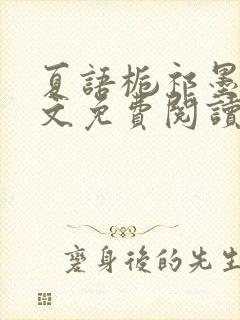 夏語梔祁墨
文免費閱讀
變身後的先生